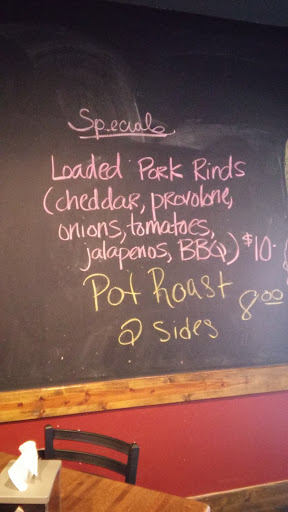 Specials
Loaded Pork Rinds
(cheddar, provolone,
onions, tomatoes,
jalapenos, BBQ) $10.
Pot Roast
2 sides 8.00